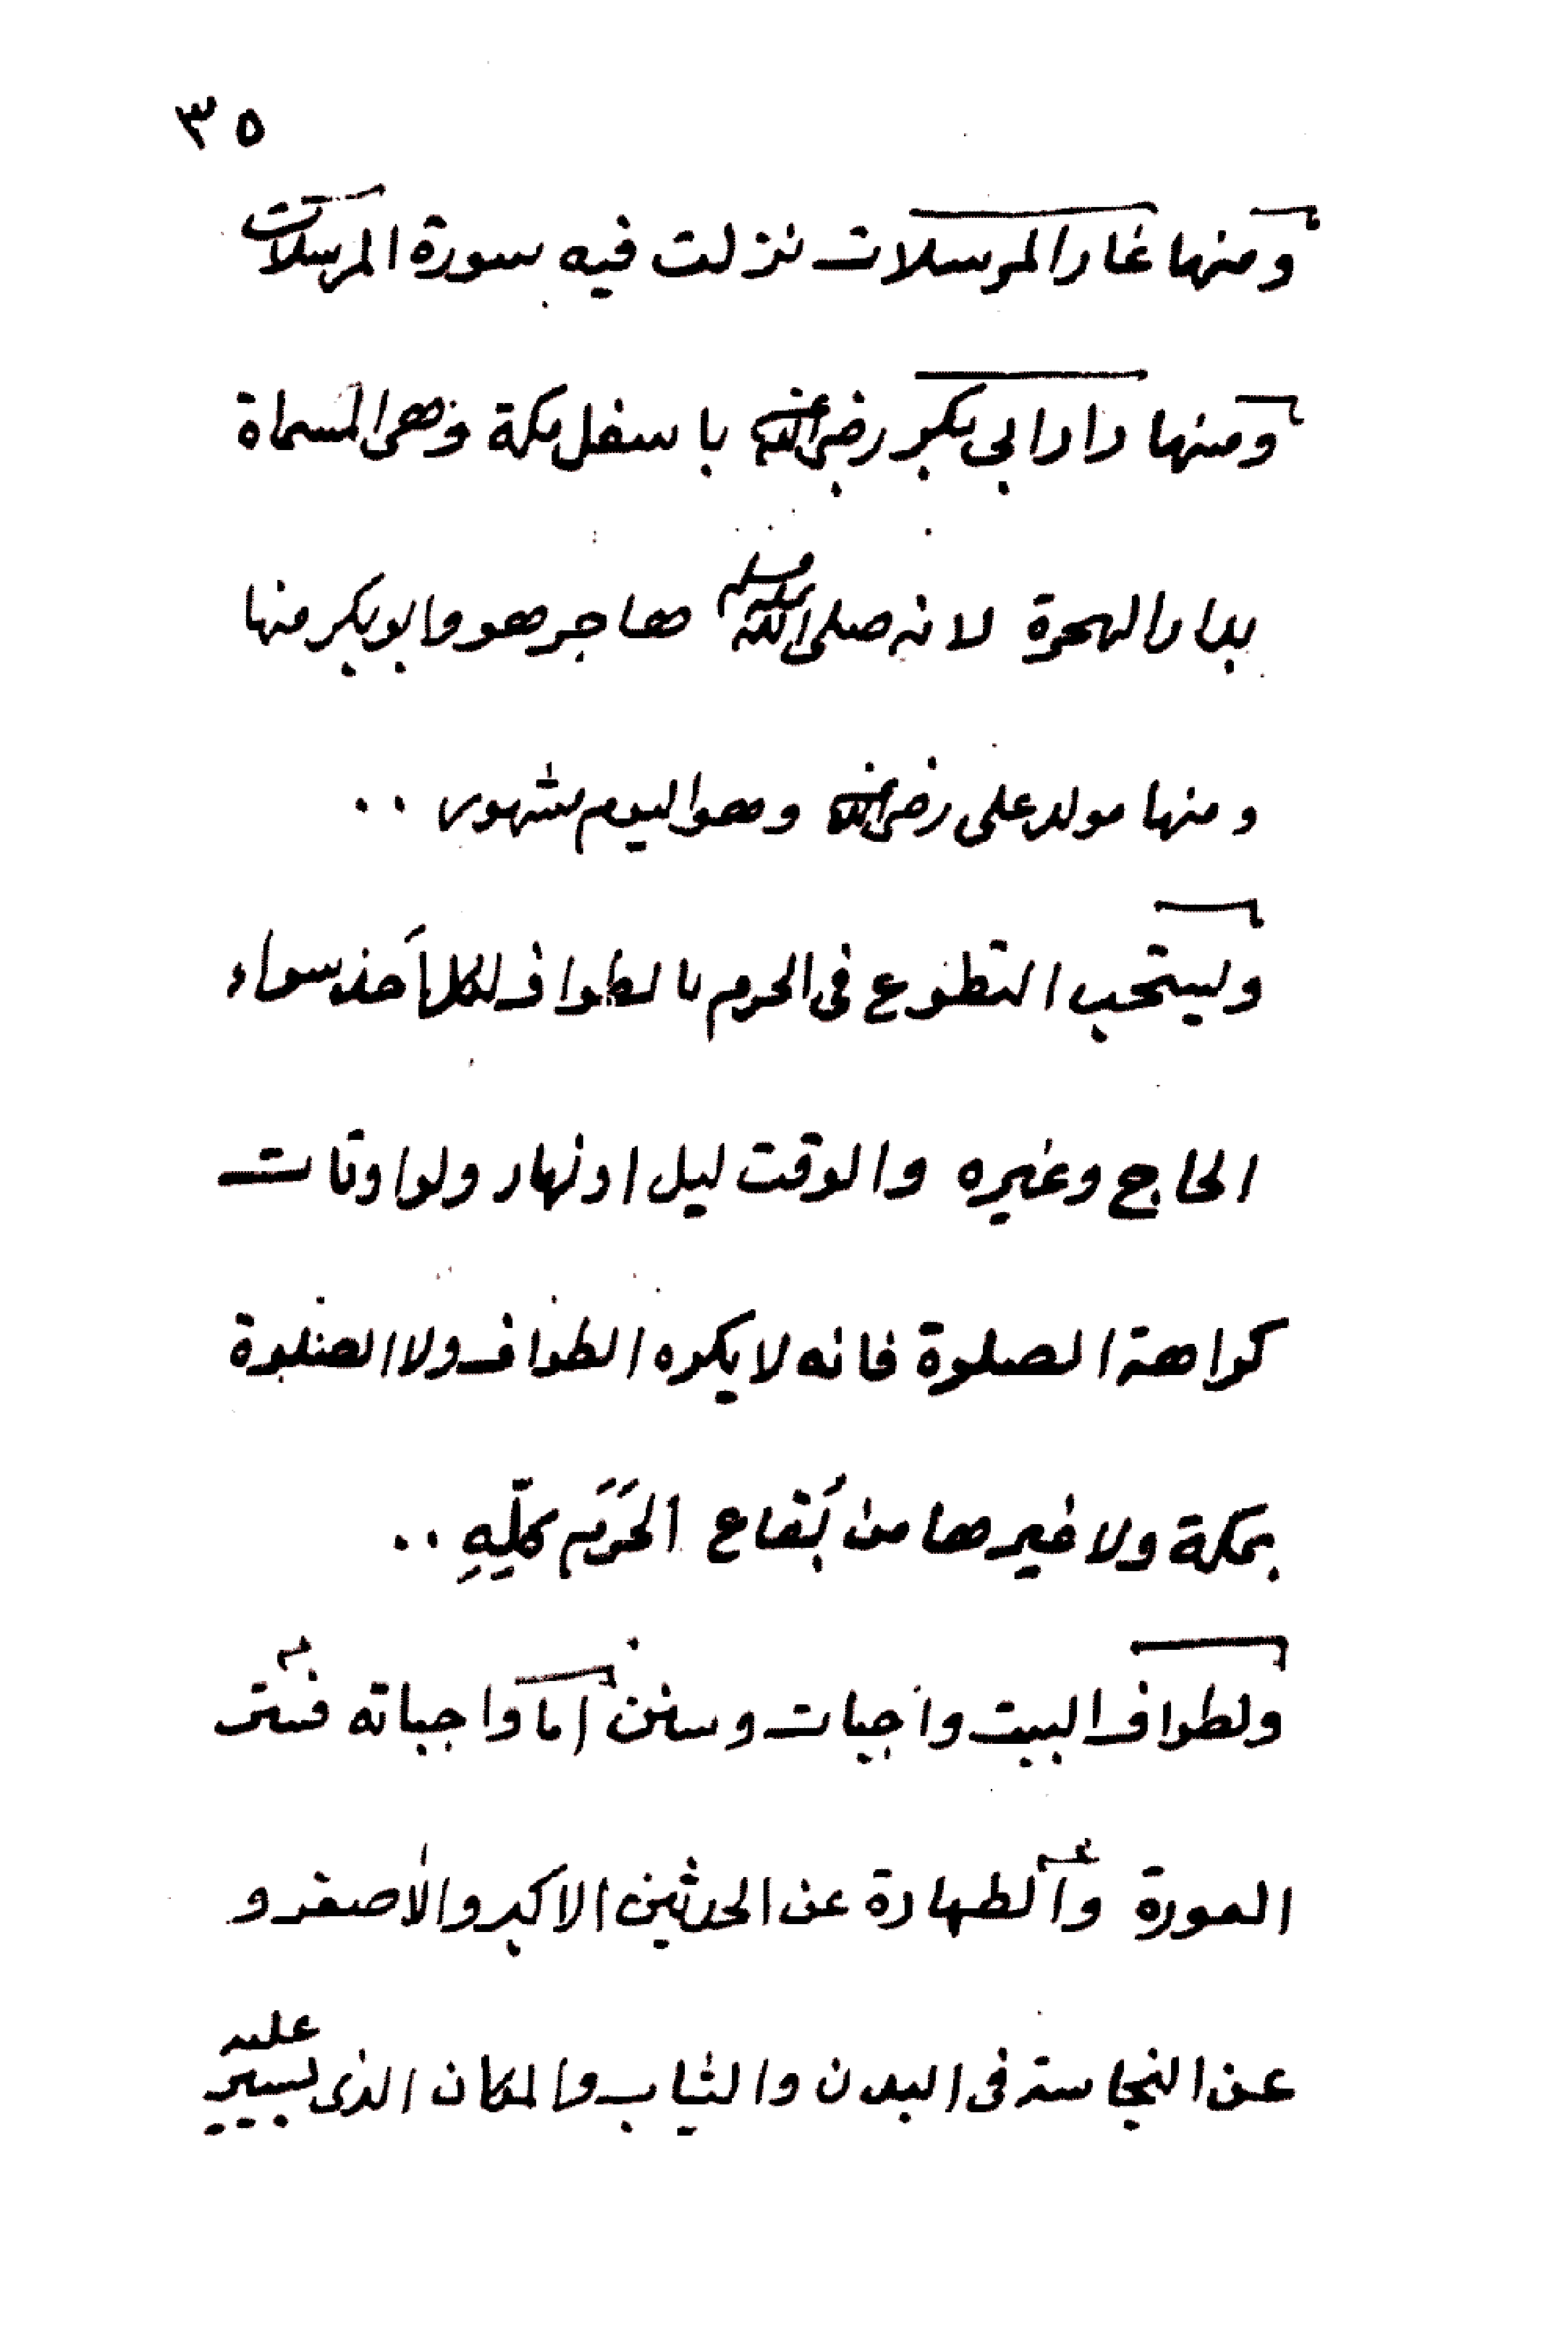 ٣٥
ومنها غار المرسلات نزلت فيه سورة المرسلات
ومنها دار ابى بكر رضى الله عنه باسفل مكة وهى المسماة
بدار الهجرة لانه صلى الله عليه وسلم هاجر هو وابو بكر منها
ومنها مولد على رضى الله عنه وهو اليوم مشهور ..
ويستحب التطوع فى الحرم بالطواف لكل أحد سواء
الحاج وغيره والوقت ليل او نهار ولو اوقات
كراهة الصلوة فانه لا يكره الطواف ولا الصلوة
بمكة ولا غيرها من بُقاع الحَرَم كلِّهِ ..
ولطواف البيت واجبات وسنن أما واجباته فستر
العورة والطهارة عن الحدثين الاكبر والاصغر و
عن النجاسة فى البدن والثياب والمكان الذى يسير عليه